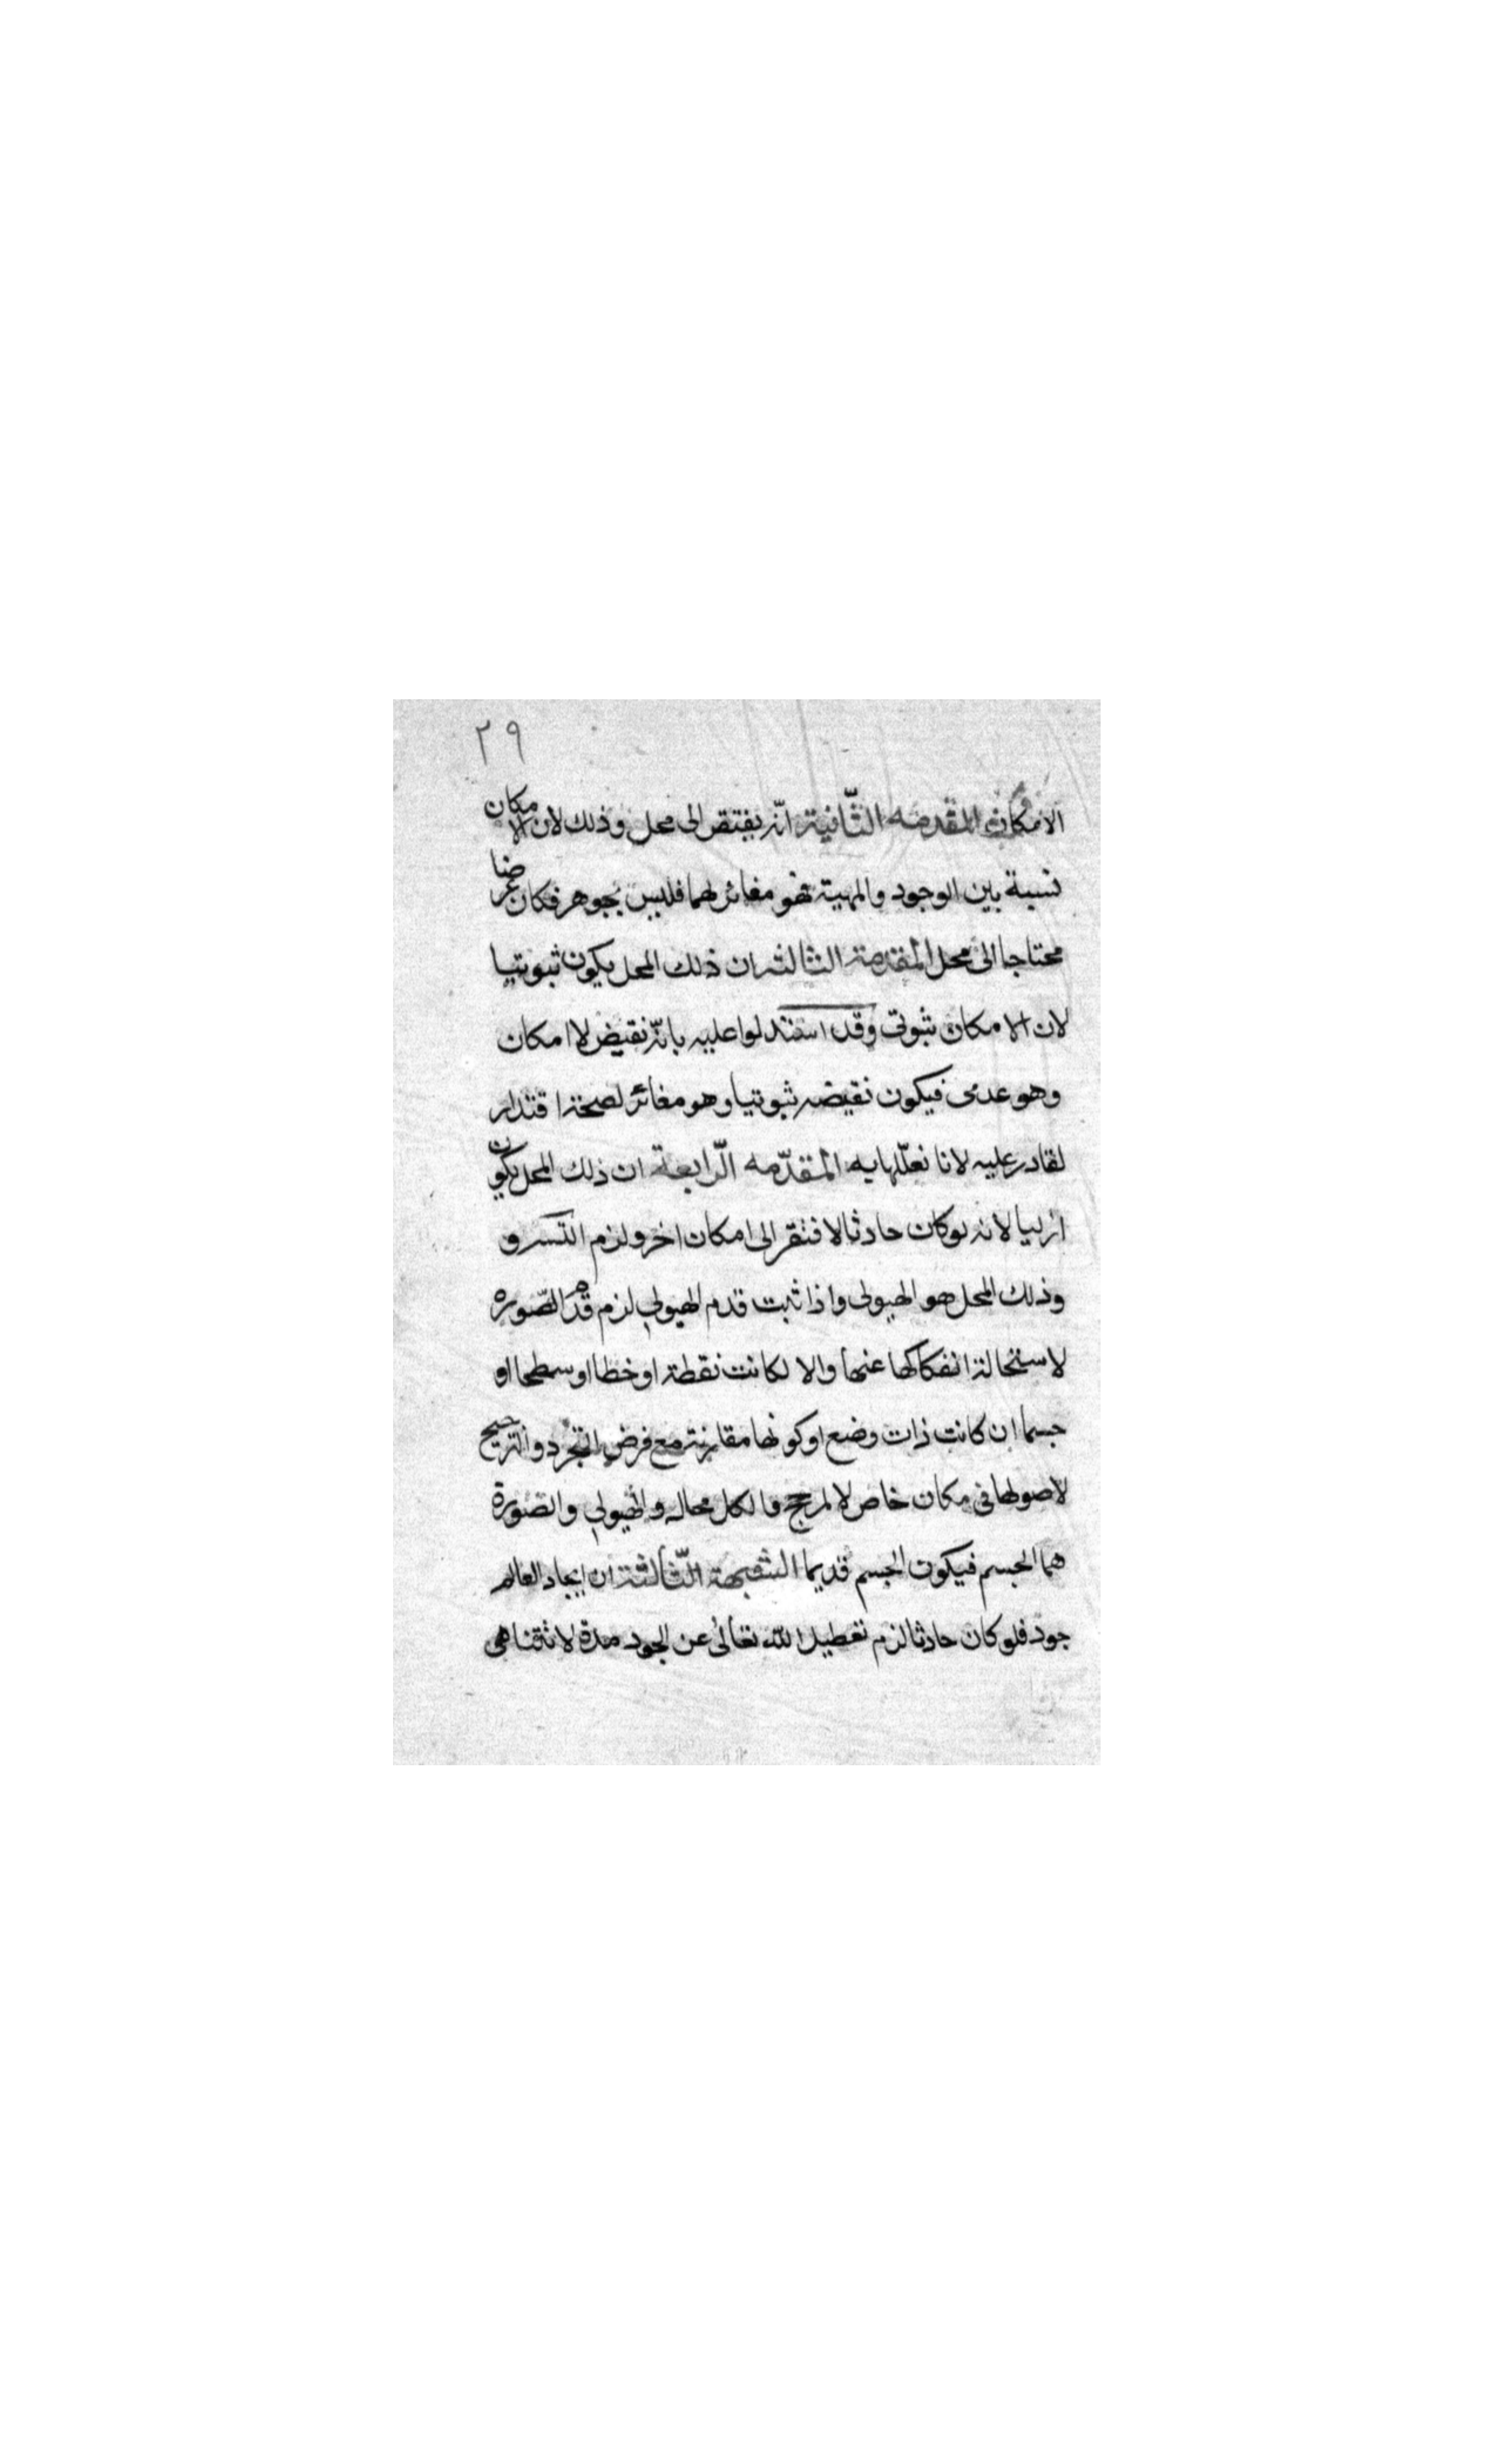 ٢٩
الامكان المقدمه الثّانية انّه يفتقر الى محل وذلك لان الامكان
نسبة بين الوجود والمهية فهو مغائر لهما فليس بجوهر فكان عرضا
محتاجا الى محل المقدمة الثالثه ان ذلك المحل يكون ثبوتيا
لان الامكان ثبوتى وقد استدلوا عليه بانّه نقيض لا امكان
وهو عدمى فيكون نقيضه ثبوتيا وهو مغائر لصحة اقتدار
لقادر عليه لانا نعلّلها به المقدّمه الرّابعة ان ذلك المحل يكون
ازليا لانه لوكان حادثا لافتقر الى امكان اخر ولزم التسـ ق
وذلك المحل هو الهيولى واذا ثبت قدم الهيولي لزم قدم الصّوره
لاستحالة انفكاكها عنها والا لكانت نقطة او خطا او سطحا او
جسما ان كانت ذات وضع او كونها مقارنة مع فرض التجرد والترجيح
لاصولها فى مكان خاص لا لمرجح والكل محال والهيولي والصورة
هما الجسم فيكون الجسم قديما الشبهة الثّالثة ان ايجاد العالم
جود فلو كان حادثا لزم تعطيل الله تعالى عن الجود مدة لا تتناهى